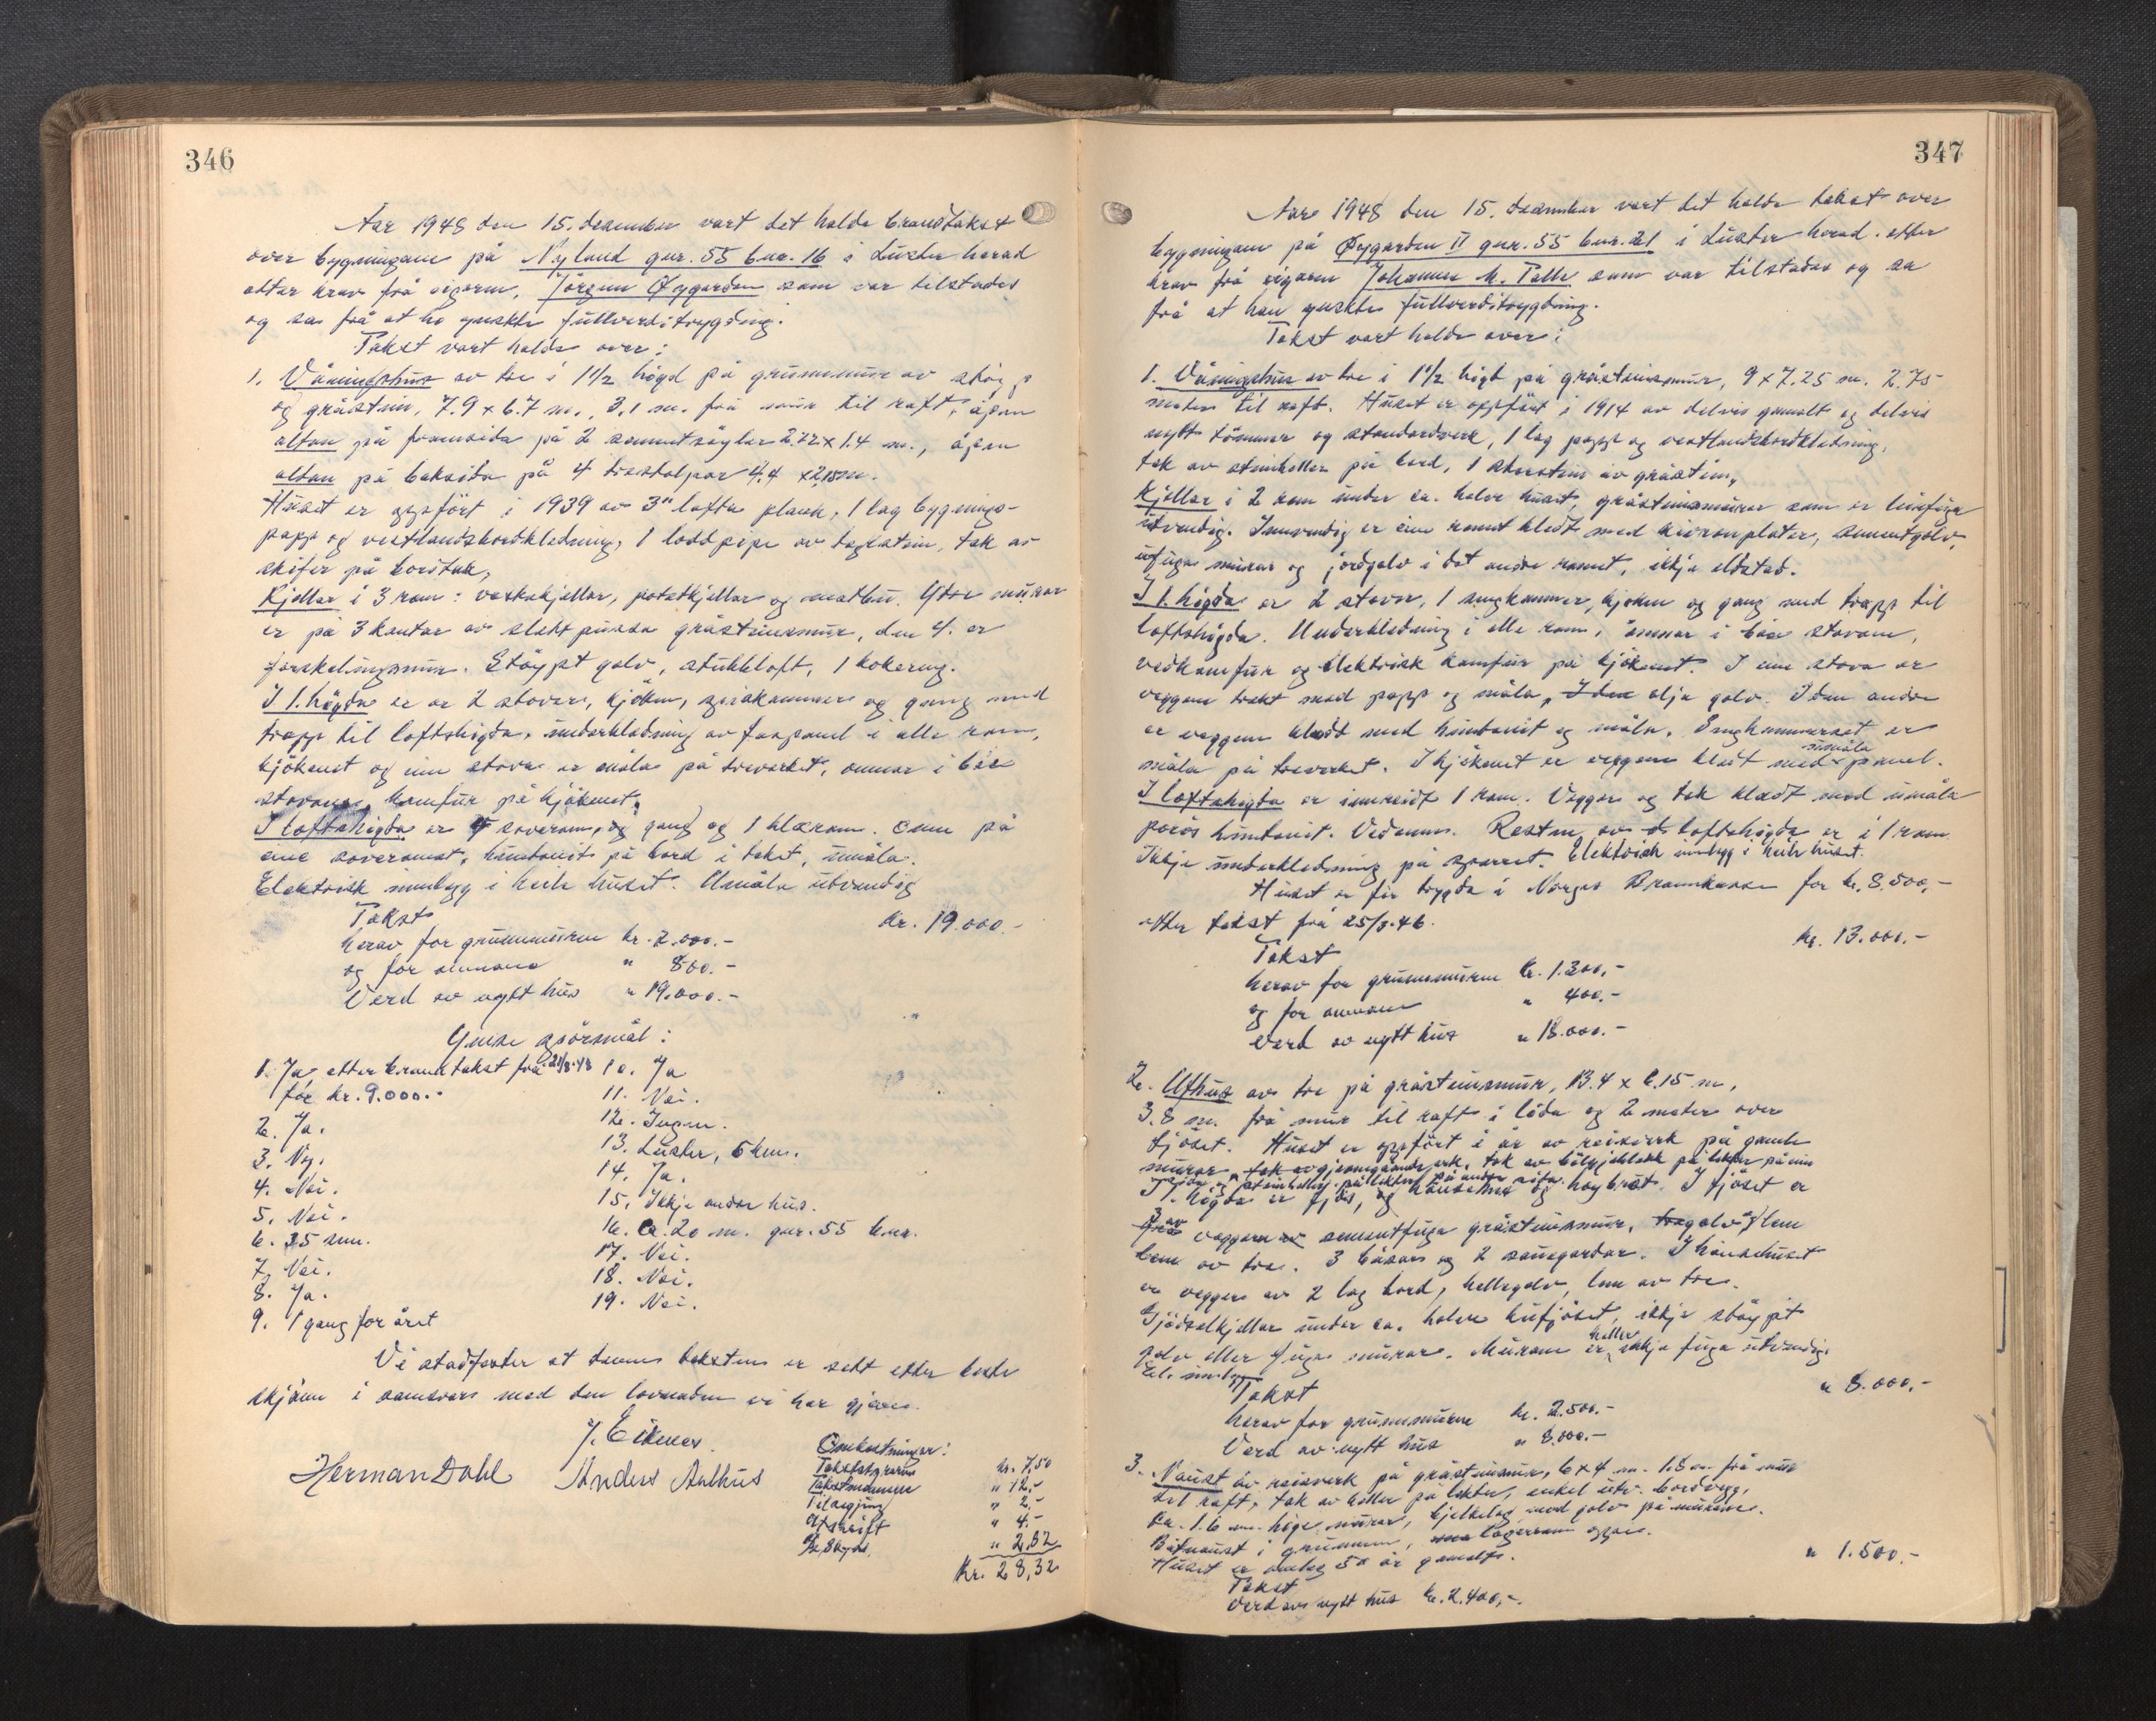 346
Aar 1948 den 15. desember vart det halde brandtakst
over bygningane på Nyland gnr. 55 bnr. 16 i Luster herad
etter krav frå eigaren, Jörgen Øygarden som var tilstades
og sa frå at ho ynskte fullverditrygding.
Takst vart halde over:
1. Våningshus av tre i 1 1/2 högd på grunnmur av
og gråstein, 7.9 x 6.7 m., 3,1 m. frå mur til raft, åpen
altan på framsida på 2 sementsöyler 2.72 x 1.4 m., åpen
altan på baksida på 4 trestolpar 4.4 x 2,15 m.
Huset er oppfört i 1939 av 3" lafta plank, 1 lag bygnings-
papp og vestlandsbordkledning, 1 loddpipe av teglstein, tak av
skifer på bordtak,
Kjellar i 3 rom: vaskekjellar, potetkjellar og matbu. Ytre murar
er på 3 kantar av slett pussa gråsteinsmur, den 4. er
forskalingsmur. Stöypt golv, stukkloft, 1 kokering.
I 1. högda er er 2 stover, kjöken, spiskammer og gang med
trapp til loftshögda, underkledning av faspanel i alle rom,
kjökenet og ein stova er måla på treverket, omnar i båe
stovene, komfur på kjökenet,
I loftshögda er 4 soverom, og gang og 1 klærom. Omn på
eine soveromet, huntonit på bord i taket, umåla.
Elektrisk innlegg i heile huset. Umåla utvendig
Takst kr. 19.000.-
herav for grunnmuren kr. 2.000.-
og for omnane " 800.-
Verd av nytt hus " 19.000.-
Ymse spörsmål:
1. Ja etter branntakst frå 21/8-43 10. Ja
for kr. 9.000.- 11. Nei.
2. Ja. 12. Ingen.
3. Nei. 13. Luster, 5 km.
4. Nei. 14. Ja.
5. Nei. 15. Ikkje andre hus.
6. 35 mm. 16. Ca. 20 m. gnr. 55 bnr.
7. Nei. 17. Nei.
8. Ja. 18. Nei.
9. 1 gang for året 19. Nei.
Vi stadfester at denne taksten er sett etter beste
skjönn i samsvar med den lovnaden vi har gjeve.
J. Eikner.
Herman Dahl Anders Aulhus
Omkostningar:
Takststyraren kr. 7,50
Takstmennene " 12.-
Tilseging " 2.-
Utskrift " 4.-
Skyds. " 2,82
Kr. 28,32
347
Aar 1948 den 15. desember vart det halde takst over
bygningane på Øygarden II gnr. 55 bnr. 21 i Luster herad. etter
krav frå eigaren Johannes M. Talle som var tilstades og sa
frå at han ynskte fullverditrygding.
Takst vart halde over:
1. Våningshus av tre i 1 1/2 högd på gråsteinsmur, 9 x 7.25 m. 2.75
meter til raft. Huset er oppfört i 1914 av delvis gamalt og delvis
nytt tömmer og standardverk, 1 lag papp og vestlandsbordkledning,
tak av steinheller på bord, 1 skorstein av gråstein,
Kjellar i 2 rom under ca. halve huset, gråsteinsmurar som er
utvendig. Innvendig er eine romet kledt med plater, sementgolv,
ufuga murar og jordgolv i det andre romet, ikkje eldstad.
I 1. högda er 2 stover, 1 sengkammer, kjöken og gang med trapp til
loftshögda. Underkledning i alle rom, omnar i båe stovene,
vedkomfur og elektrisk komfur på kjökenet. I eine stova er
veggene trekt med papp og måla, I den olja golv. I den andre
er veggene kledt med huntonit og måla. Sengkammerset er
måla på treverket. I kjökenet er veggene kledt med umåla panel.
I loftshögda er innreidt 1 rom. Vegger og tak kledt med umåla
porös huntonit. Vedomn. Resten av loftshögda er i 1 rom
Ikkje underkledning på sparret. Elektrisk innlegg i heile huset.
Huset er för trygda i Norges Brannkasse for kr. 8.500,-
etter takst frå 25/3-46.
Takst kr. 13.000.-
herav for grunnmuren kr. 1.300,-
og for omnane " 400.-
Verd av nytt hus " 18.000.-
2. Uthus av tre på gråsteinsmur, 13.4 x 6.15 m,
3.8 m. frå mur til raft i löda og 2 meter over
fjöset. Huset er oppfört i år av reisverk på gamle
murar, tak av gjennomgåande, tak av bölgjeblekk på lekter på ein
side og steinheller på lekter på andre sida.
I 1. högda er fjös, og hönsehus og höybrot. I fjöset er
3 av veggene av sementfuga gråsteinsmur, tregolv og lem
lem av tre. 3 båsar og 2 sauegardar. I hönsehuset
er veggene av 2 lag bord, hellegolv, lem av tre.
Gjödselkjellar under ca. halve kufjöset, ikkje stöypt
golv eller fuga murar. Murane er heller ikkje fuga utvendig.
El. innlegg
Takst " 8.000.-
herav for grunnmuren kr. 2.500.-
Verd av nytt hus " 8.000.-
3. Naust av reisverk på gråsteinsmur, 6 x 4 m. 1.8 m. frå mur
til raft, tak av heller på lekter, enkel utv. bordvegg,
ca. 1.6 m. höge murar, bjelkelag med golv på murane.
Båtnaust i grunnen, lagerrom oppe.
Huset er omlag 50 år gamalt.
Takst " 1.500.-
Verd av nytt hus kr. 2.400,-.